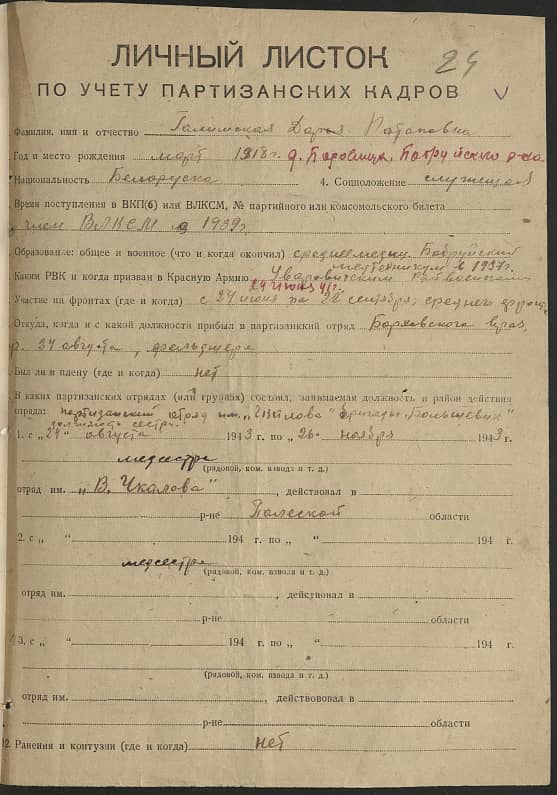 ЛИЧНЫЙ ЛИСТОК
24
ПО УЧЕТУ ПАРТИЗАНСКИХ КАДРОВ
Фамилия, имя и отчество Дарья Потаповна
Год и место рождения март 1918 г. д. Боровица, Бобруйского р-на.
Национальность Беларуска 4. Соцположение служащая
Время поступления в ВКП(б) или ВЛКСМ, № партийного или комсомольского билета
член ВЛКСМ с 1939 г.
Образование: общее и военное (что и когда окончил) среднемедиц. Бобруйский
медтехникум в 1937 г.
Каким РВК и когда призван в Красную Армию Уваровичским Райвоенкоматом
24 июня 41 г.
Участие на фронтах (где и когда) с 24 июня по 22 сентября, среднего фронта
Откуда, когда и с какой должности прибыл в партизанский отряд
24 августа, фельдшера
Был ли в плену (где и когда) нет
В каких партизанских отрядах (или группах) состоял, занимаемая должность и район действия
отряда: партизанский отряд им. „Чкалова" бригады „Большевик"
сестра
1. с „24" августа 1943 г. по „26" ноября 1943 г.
медсестра
(рядовой, ком. взвода и т. д.)
отряд им. „В. Чкалова", действовал в
р-не Полеской области
2. с „ " 194 г. по „ " 194 г.
медсестра
(рядовой, ком. взвода и т. д.)
отряд им. , действовал в
р-не области
3. с „ " 194 г. по „ " 194 г.
(рядовой, ком. взвода и т. д.)
отряд им. , действововал в
р-не области
12. Ранения и контузии (где и когда) нет